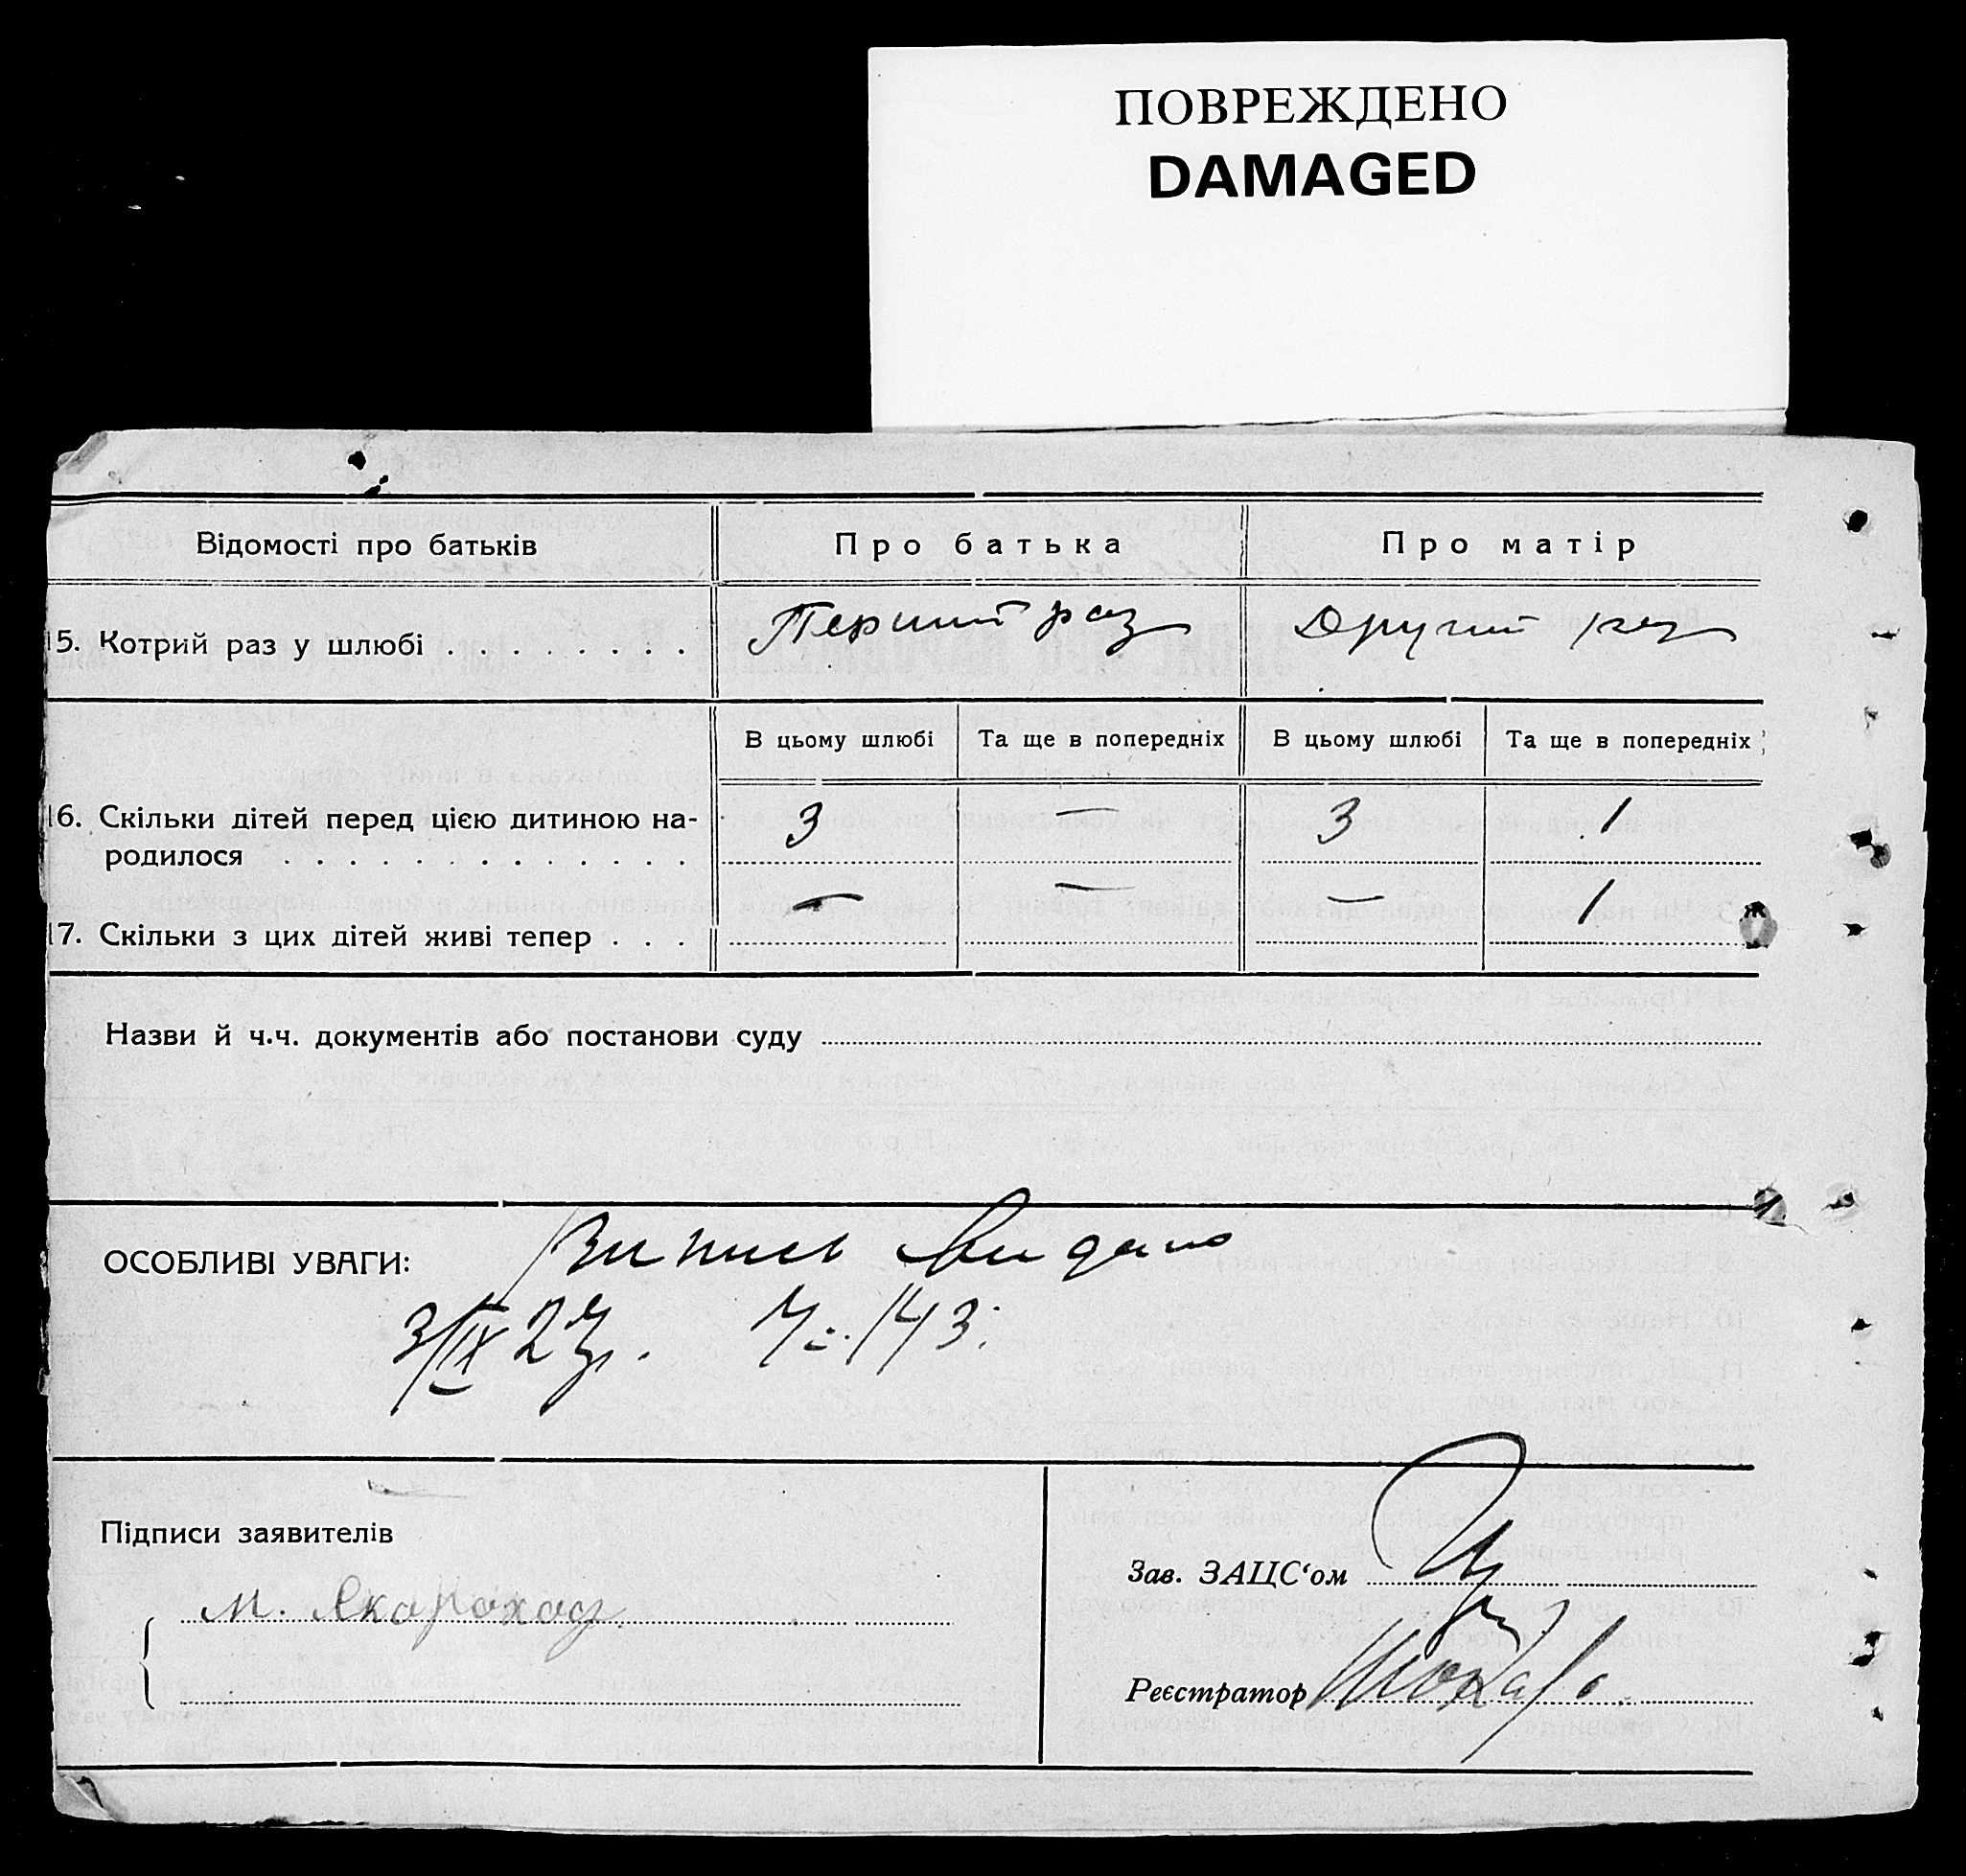 ПОВРЕЖДЕНО
DAMAGED
Відомості про батьків Про батька Про матір
15. Котрий раз у шлюбі . . . . . . . . Перший раз Другий раз
В цьому шлюбі Та ще в попередніх В цьому шлюбі Та ще в попередніх
16. Скільки дітей перед цією дитиною на-
родилося . . . . . . . . . . . . . 3 — 3 1
17. Скільки з цих дітей живі тепер . . . — — — 1
Назви й ч.ч. документів або постанови суду
ОСОБЛИВІ УВАГИ: Випись видано
3/IX 27р. Ч. 143.
Підписи заявителів
М. Скороход
Зав. ЗАЦС'ом
Реєстратор